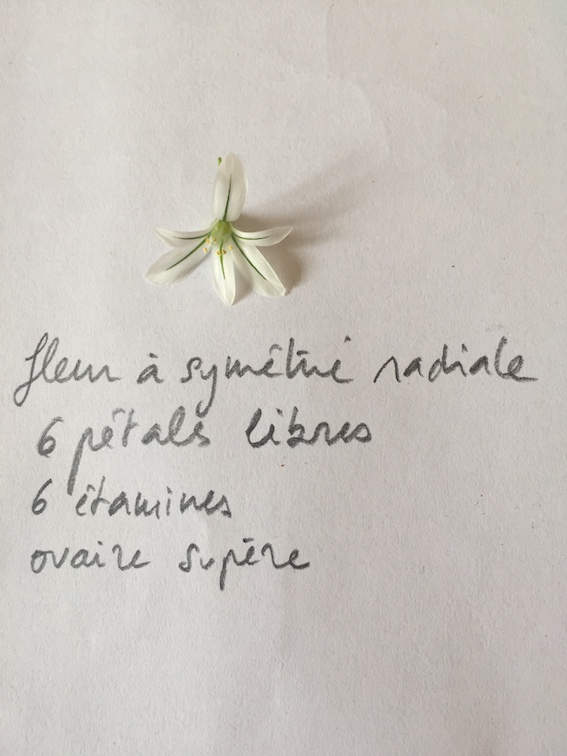 fleur à symétrie radiale
6 pétals libres
6 étamines
ovaire supère